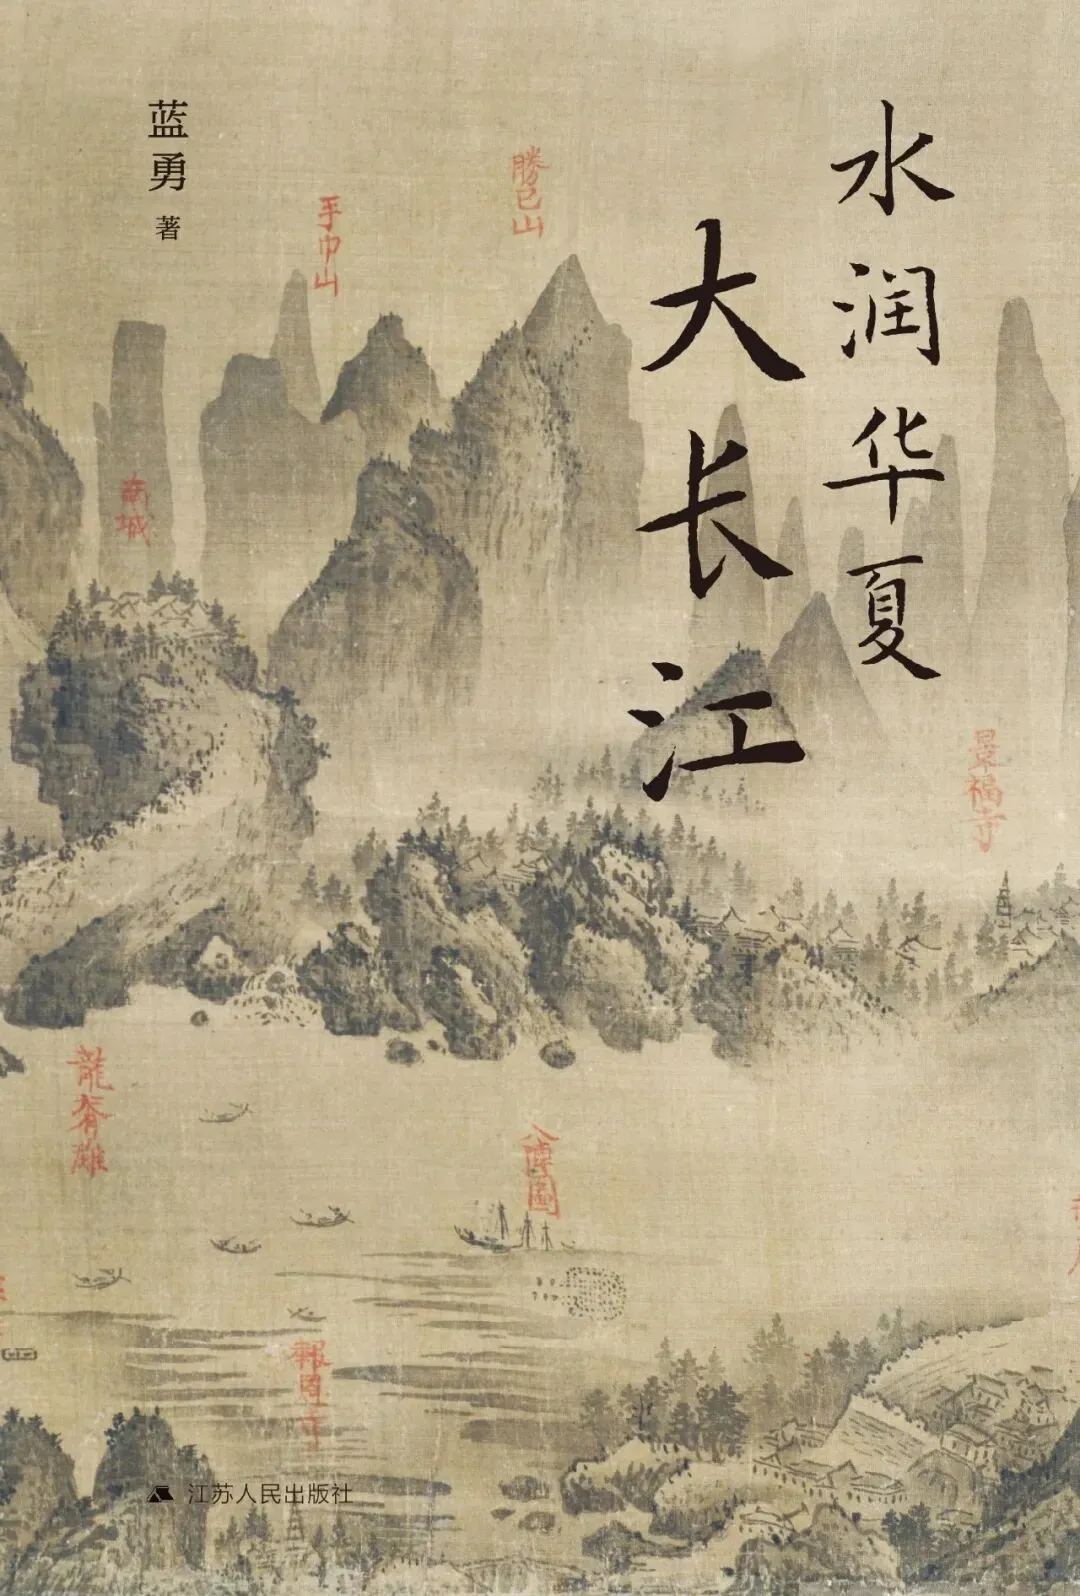 水润华夏
大长江
蓝勇 著
勝己山
手巾山
景福寺
龍脊灘
八陣圖
報恩寺
江苏人民出版社